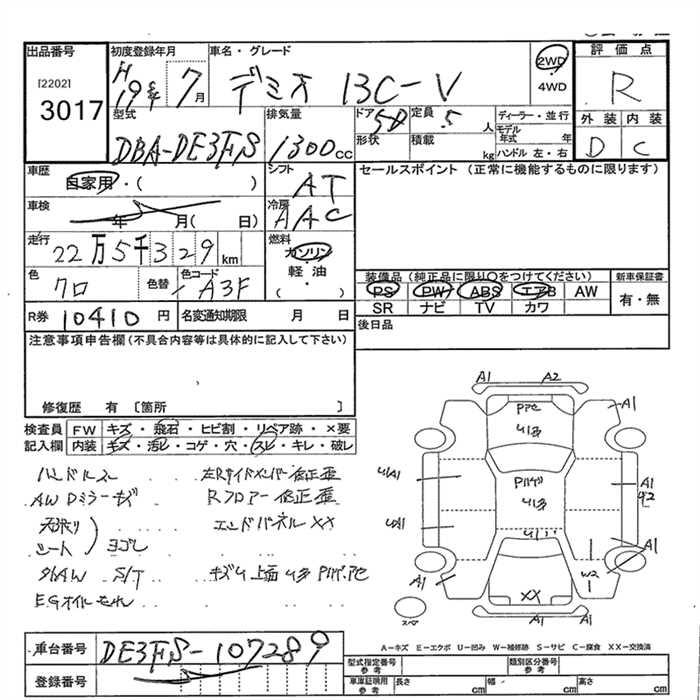 出品番号
[2202]
3017
初度登録年月
H
19年 7月
車名・グレード
デミオ 13C-V
2WD
4WD
評価点
R
外装 内装
D C
型式
DBA-DE3FS
排気量
1300cc
ドア
5D
形状
定員
5人
積載
kg
ディーラー・並行
モデル年式 年
ハンドル 左・右
車歴
自家用・( )
シフト
AT
セールスポイント (正常に機能するものに限ります)
車検
年 月( 日)
冷房
AAC
走行
22万5千329km
燃料
ガソリン・軽油
( )
色
クロ
色替
色コード
A3F
装備品(純正品に限り○をつけてください)
PS PW ABS エアB AW
SR ナビ TV カワ
新車保証書
有・無
R券 10410円
名変通知期限 月 日
後日品
注意事項申告欄(不具合内容等は具体的に記入して下さい)
修復歴 有〔箇所 〕
検査員記入欄
FW キズ・飛石・ヒビ割・リペア跡・×要
内装 キズ・汚レ・コゲ・穴・スレ・キレ・破レ
ハンドルスレ
AW Dミラーキズ
天張り
シート
ヨゴレ
タイAW S/T
EGオイルモレ
左Rサイドメンバー修正歪
Rフロアー修正歪
エンドパネルXX
A1 A2
A1
A1
A1
W2
A1
A1
XX
スペア
A-キズ E-エクボ U-凹み W-補修跡 S-サビ C-腐食 XX-交換済
車台番号
DE3FS-107289
登録番号
型式指定番号参考
類別区分番号参考
車庫証明用参考
長さ cm
幅 cm
高さ cm